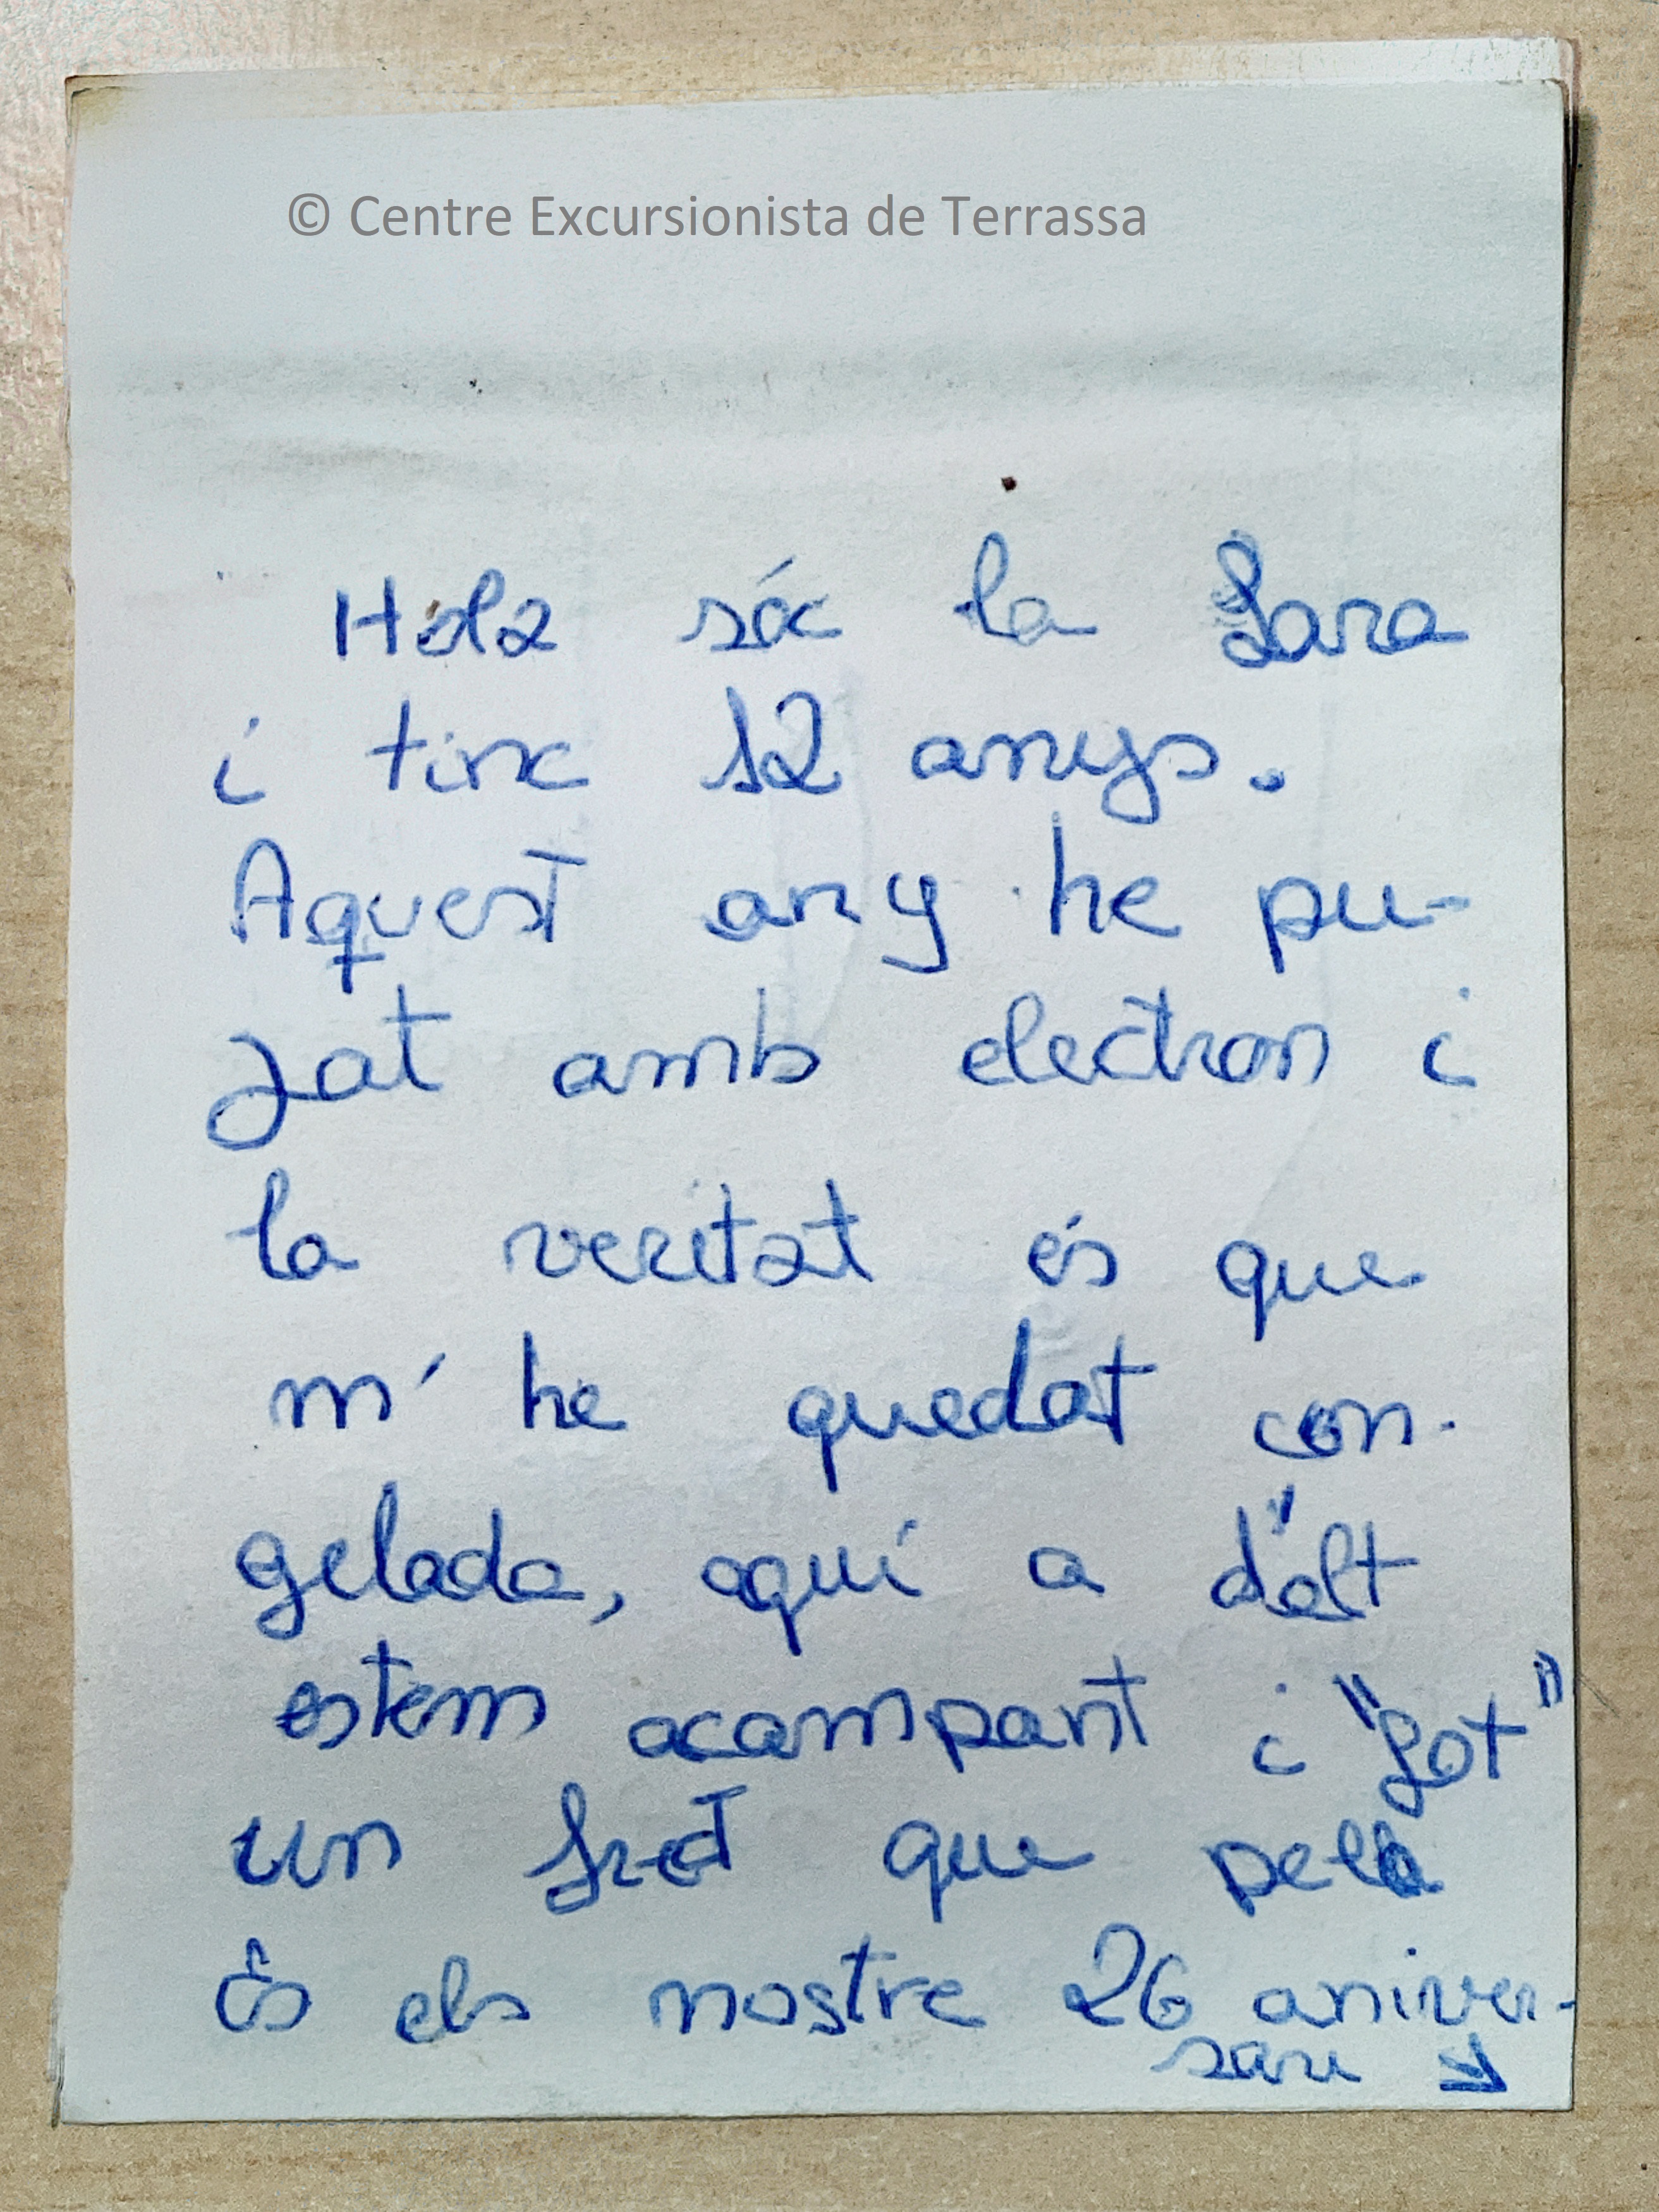 © Centre Excursionista de Terrassa
Hola sóc la Sara
i tinc 12 anys.
Aquest any he pu-
jat amb electron i
la veritat és que
m' he quedat con-
gelada, aquí a d'alt
estem acampant i "fot"
un fred que pela
És els nostre 26 aniver-
sari